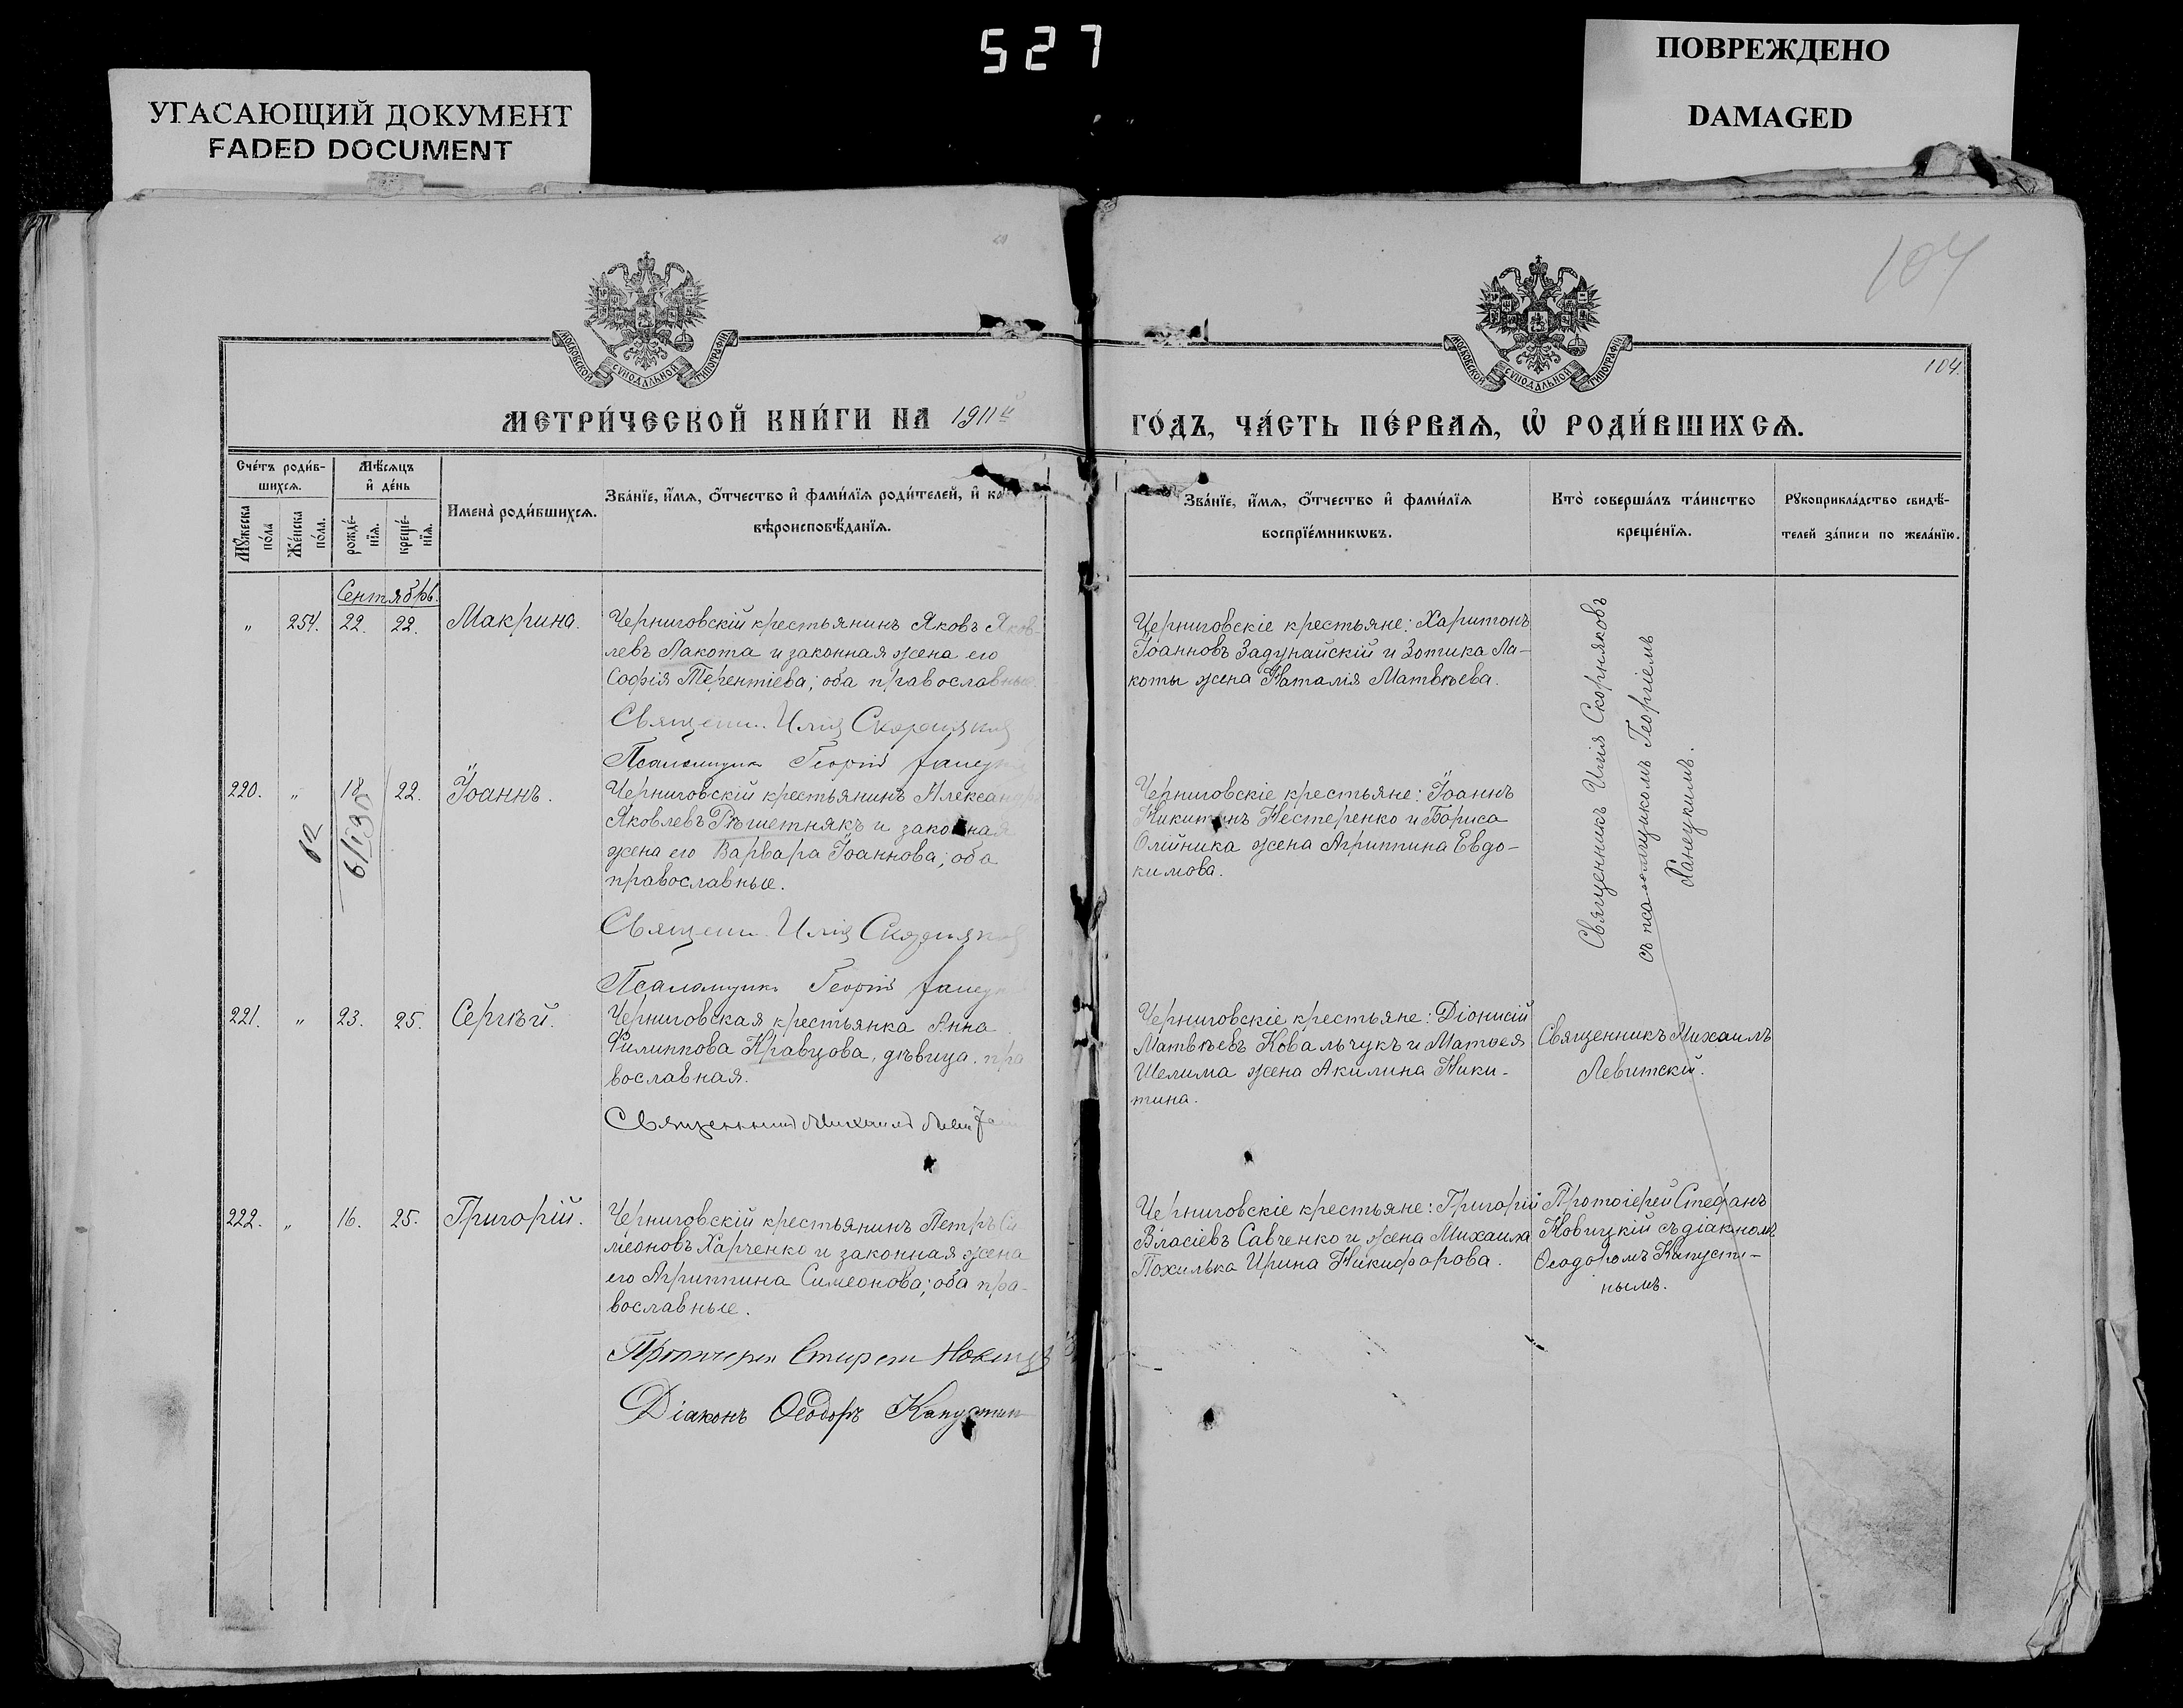 527
УГАСАЮЩИЙ ДОКУМЕНТ
FADED DOCUMENT
ПОВРЕЖДЕНО
DAMAGED
104
МОСКОВСКОЙ СѴНОДАЛЬНОЙ ТИПОГРАФІИ
МОСКОВСКОЙ СѴНОДАЛЬНОЙ ТИПОГРАФІИ
104.
МЕТРИ́ЧЕСКОЙ КНИ́ГИ НА 1911й
ГО́ДЪ, ЧА́СТЬ ПЕ́РВАѦ, Ѡ҆ РОДИ́ВШИХСѦ.
Сче́тъ роди́в-
шихсѧ.
Мꙋ́жеска
по́ла
Же́нска
по́ла.
Мѣ́сѧцъ
и҆ де́нь
рожде́-
нїѧ.
креще́-
нїѧ.
Имена̀ роди́вшихсѧ.
Зва́нїе, и҆́мѧ, ѻ҆́тчество и҆ фами́лїѧ роди́телей, и҆ ка
вѣроисповѣ́данїѧ.
Зва́нїе, и҆́мѧ, ѻ҆́тчество и҆ фами́лїѧ
воспрїе́мникѡвъ.
Кто̀ соверша́лъ та́инство
креще́нїѧ.
Рꙋкоприкла́дство свидѣ́-
телей за́писи по жела́нїю.
Сентябрь.
„ 254. 22. 22. Макрина.
Черниговскій крестьянинъ Яковъ Яков-
левъ Лакота и законная жена его
Софія Терентіева; оба православные.
Священ. Илія Скорняков
Псаломщик Георгій Ганецкій
Черниговскіе крестьяне: Харитонъ
Іоанновъ Задунайскій и Зотика Ла-
коты жена Наталія Матвѣева.
Священникъ Илія Скорняковъ
съ псаломщикомъ Георгіемъ
Ганецкимъ.
220. „ 18 22. Іоаннъ.
Черниговскій крестьянинъ Александръ
Яковлевъ Рѣшетнякъ и законная
жена его Варвара Іоаннова; оба
православные.
Священ. Илія Скорняков
Псаломщик Георгій Ганецкій
Черниговскіе крестьяне: Іоаннъ
Никитинъ Нестеренко и Бориса
Олійника жена Агриппина Евдо-
кимова.
221. „ 23. 25. Сергѣй.
Черниговская крестьянка Анна
Филиппова Кравцова, дѣвица. пра
вославная.
Священникъ Михаилъ
Черниговскіе крестьяне: Діонисій
Матвѣевъ Ковальчукъ и Матѳея
Шелима жена Акилина Ники-
тина.
Священникъ Михаилъ
Левитскій.
222. „ 16. 25. Григорій.
Черниговскій крестьянинъ Петръ Си
меоновъ Харченко и законная жена
его Агриппина Симеонова; оба пра-
вославные.
Протоіерей Стефан Новицкій
Діаконъ Ѳеодоръ Капустин
Черниговскіе крестьяне: Григорій
Власіевъ Савченко и жена Михаила
Похилька Ирина Никифорова.
Протоіерей Стефанъ
Новицкій съ діакономъ
Ѳеодоромъ Капусти-
нымъ.